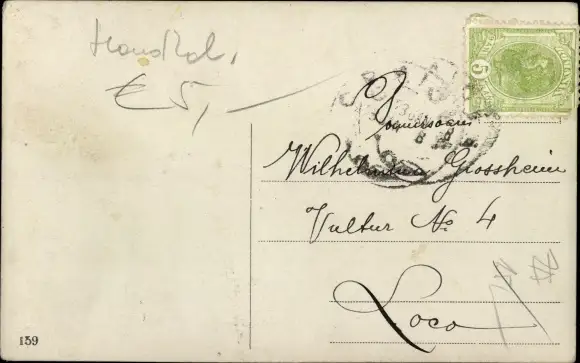 € 5,-
Domnisoarei
Wilhelmina Grossheim
Vultur No 4
Loco
5
159